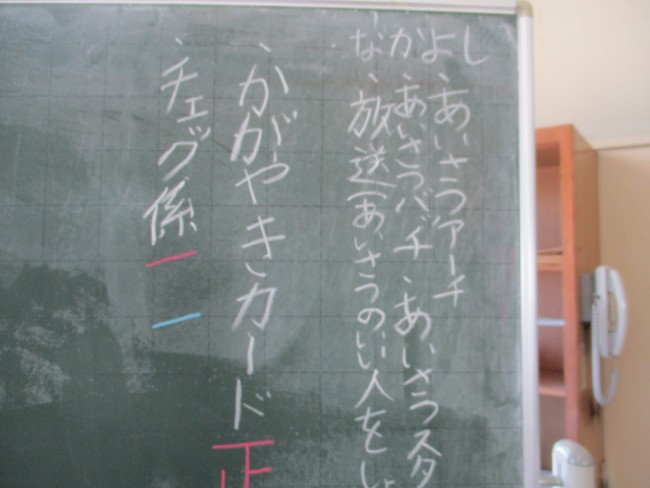 なかよし
・あいさつアーチ
・あいさつバッチ ・あいさつスタ
・放送(あいさつのいい人をしょ
・かがやきカード 正
・チェック係 一 一